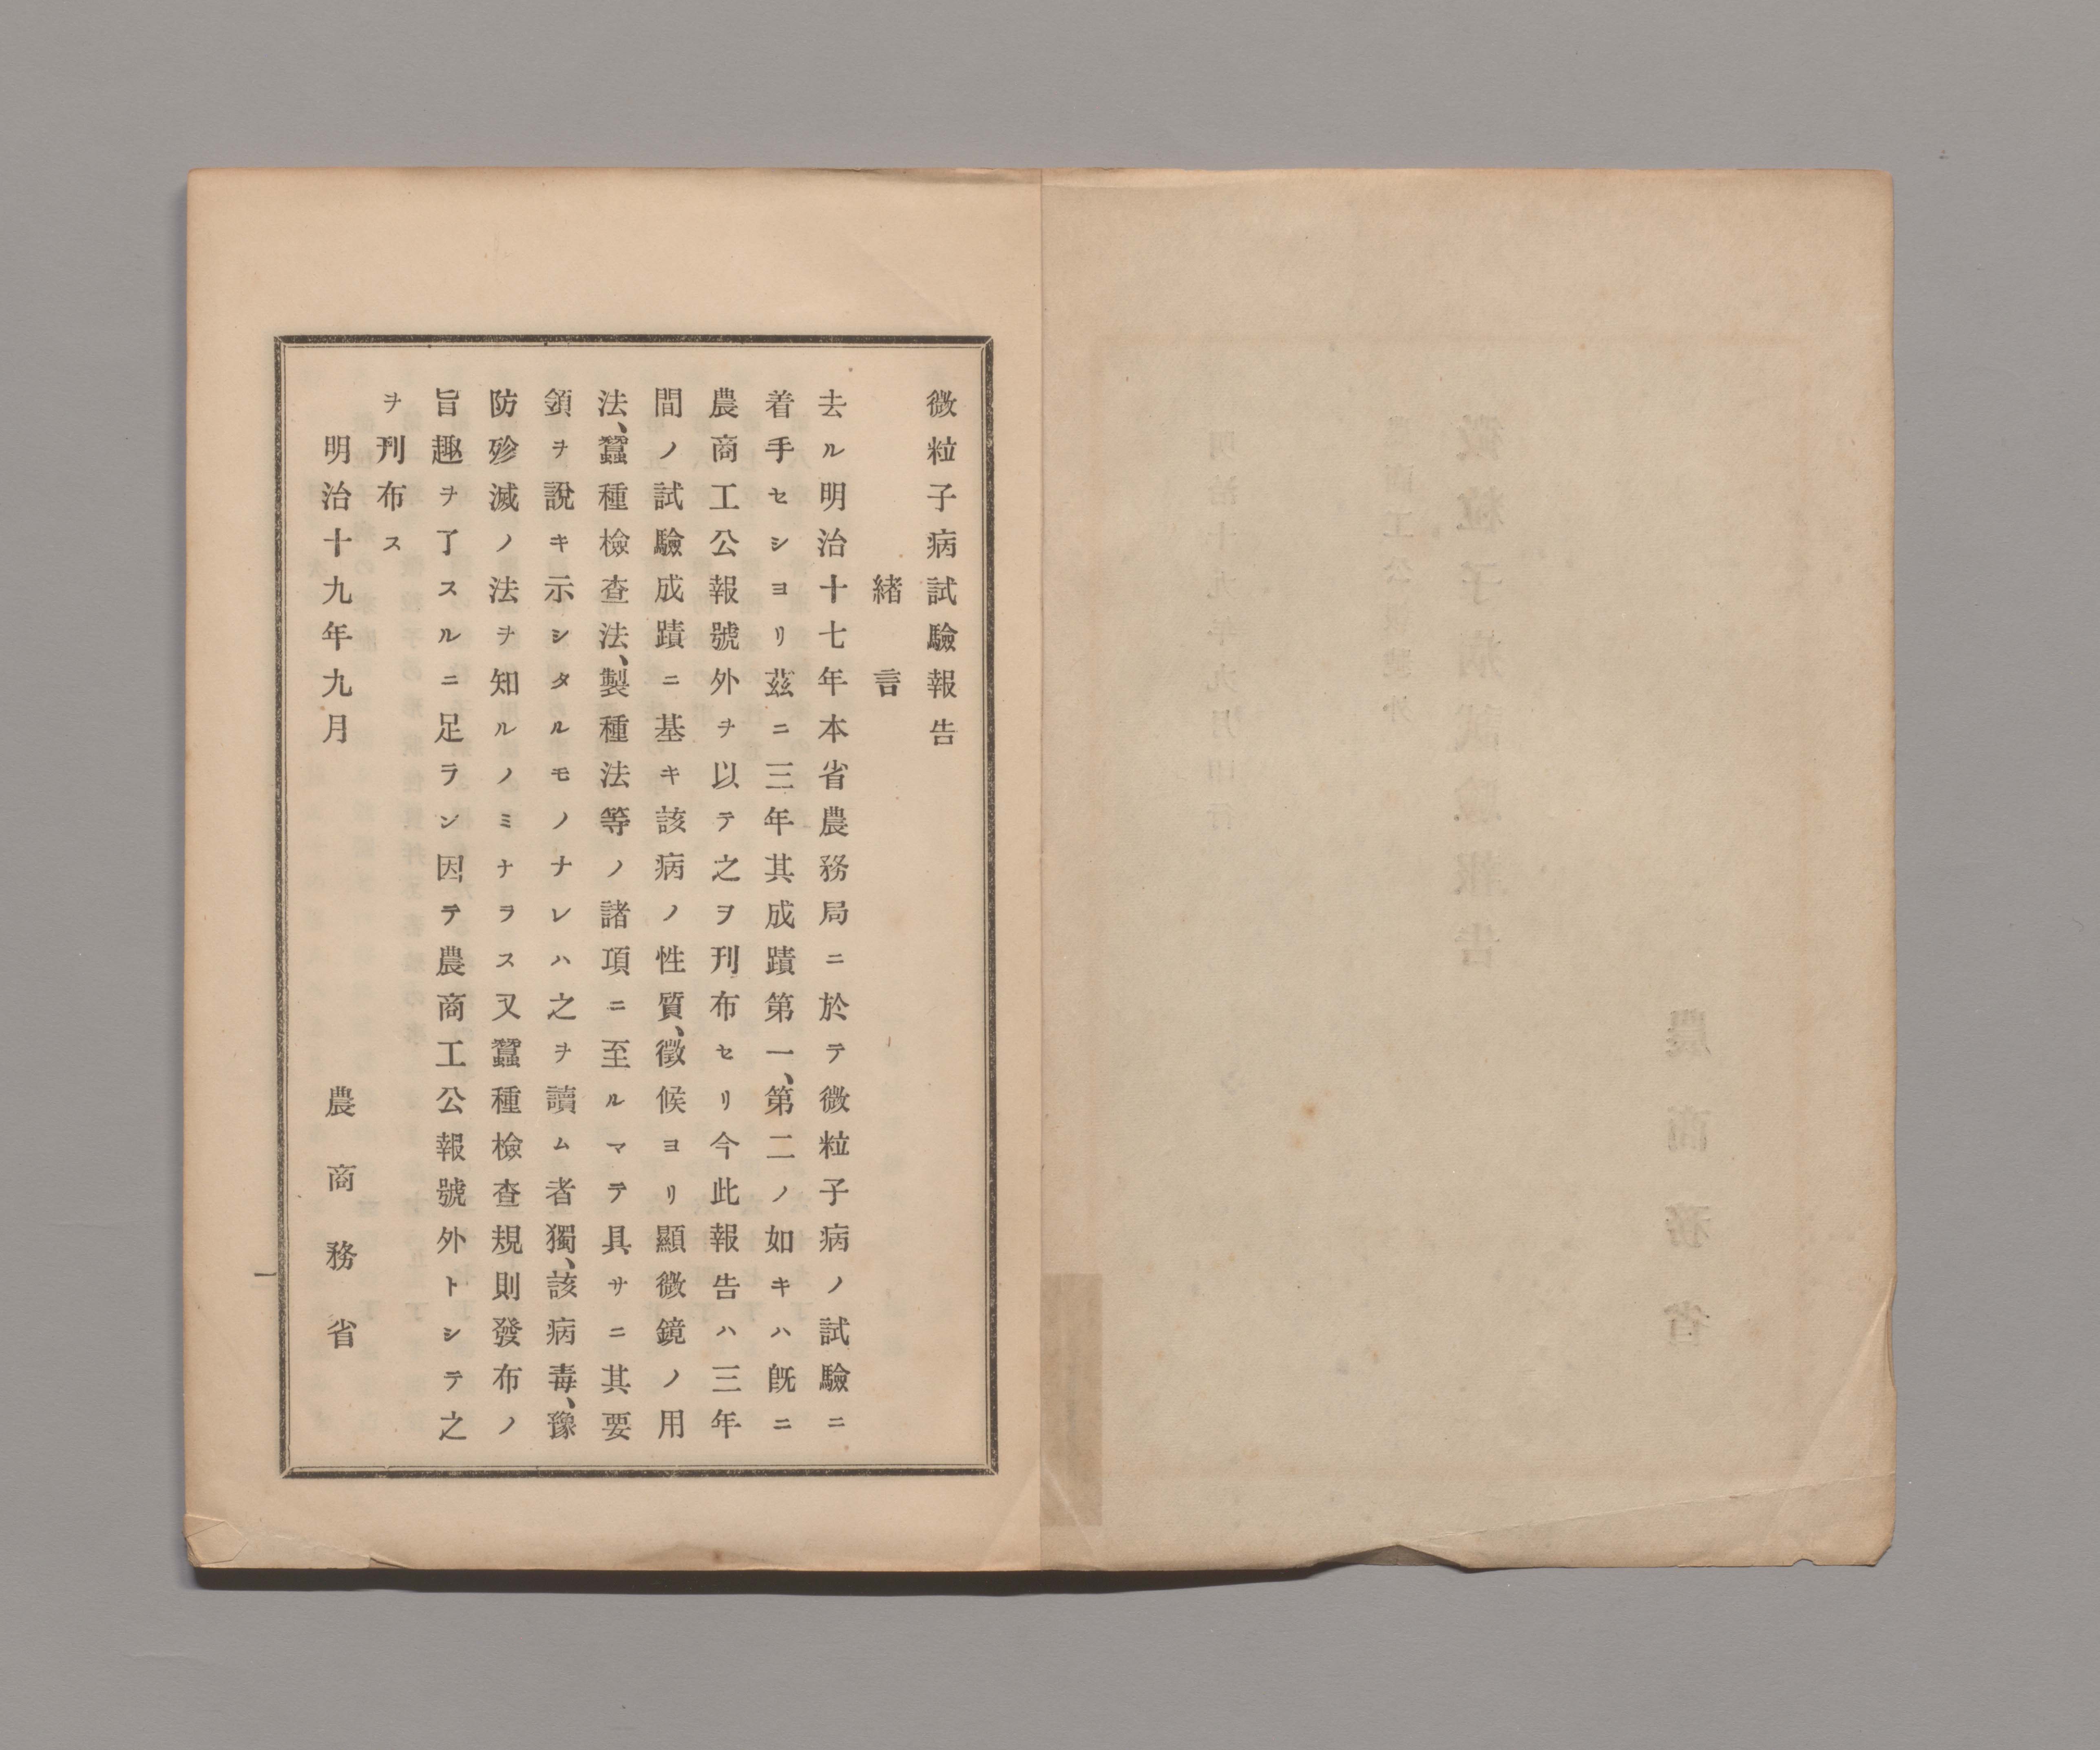 微粒子病試驗報告
緒言
去ル明治十七年本省農務局ニ於テ微粒子病ノ試驗ニ
着手セシヨリ茲ニ三年其成蹟第一、第二ノ如キハ旣ニ
農商工公報號外ヲ以テ之ヲ刊布セリ今此報告ハ三年
間ノ試驗成蹟ニ基キ該病ノ性質、徵候ヨリ顯微鏡ノ用
法、蠶種檢查法、製種法等ノ諸項ニ至ルマテ具サニ其要
領ヲ說キ示シタルモノナレハ之ヲ讀ム者獨、該病毒、豫
防殄滅ノ法ヲ知ルノミナラス又蠶種檢查規則發布ノ
旨趣ヲ了スルニ足ラン因テ農商工公報號外トシテ之
ヲ刊布ス
明治十九年九月
農商務省
一
農商務省
微粒子病試驗報告
農商工公報號外
明治十九年九月印行